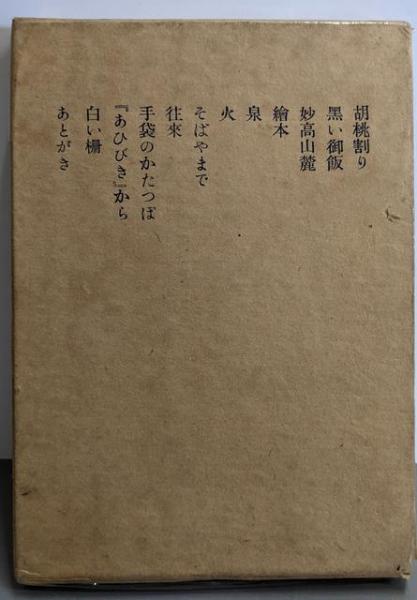 胡桃割り
黒い御飯
妙高山麓
繪本
泉
火
そばやまで
往來
手袋のかたつぽ
『あひびき』から
白い柵
あとがき